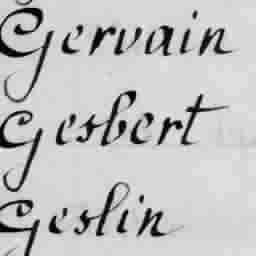 Gervain
Gesbert
Geslin